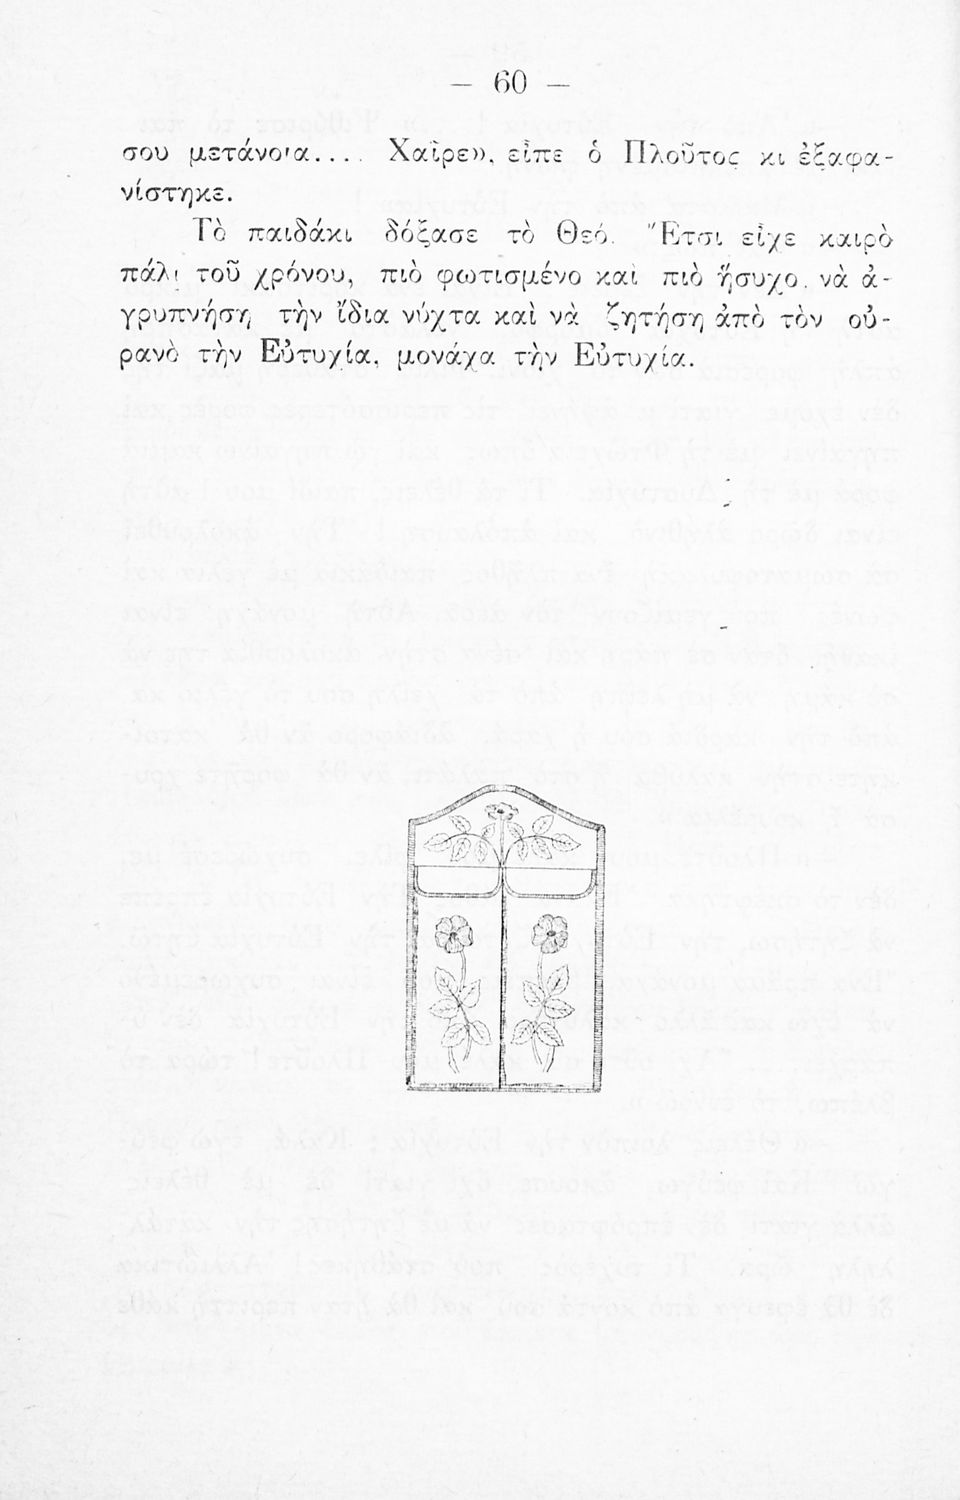 — 60 —
σου μετάνοια.... Χαῖρε», εἶπε ὁ Πλοῦτος κι ἐξαφα-
νίστηκε.
Τὸ παιδάκι δόξασε τὸ Θεό. Ἔτσι εἶχε καιρὸ
πάλι τοῦ χρόνου, πιὸ φωτισμένο καὶ πιὸ ἥσυχο, νὰ ἀ-
γρυπνήσῃ τὴν ἴδια νύχτα καὶ νὰ ζητήσῃ ἀπὸ τὸν οὐ-
ρανὸ τὴν Εὐτυχία, μονάχα τὴν Εὐτυχία.